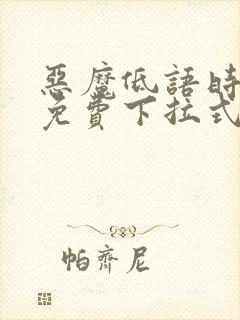 惡魔低語時
免費下拉式
帕齊尼